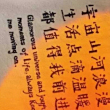 宇宙山河浪漫
生活点滴温暖
都值得我前进
Glamorous universe and
moments of life, always keep
me moving on.